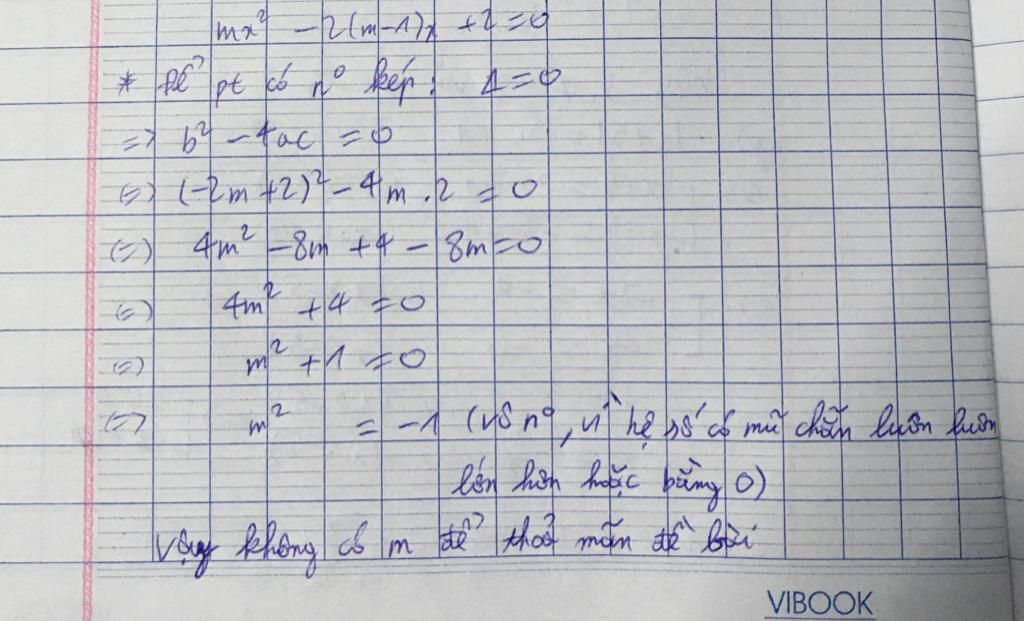 mx² - 2(m-1)x + 2 = 0
* Để pt có n° kép: Δ = 0
=> b² - 4ac = 0
(=) (-2m+2)² - 4m . 2 = 0
(=) 4m² - 8m + 4 - 8m = 0
(=) 4m² + 4 = 0
(=) m² + 1 = 0
(=) m² = -1 (vô n°, vì hệ số có mũ chẵn luôn luôn
lớn hơn hoặc bằng 0)
Vậy không có m để thoả mãn đề bài
VIBOOK